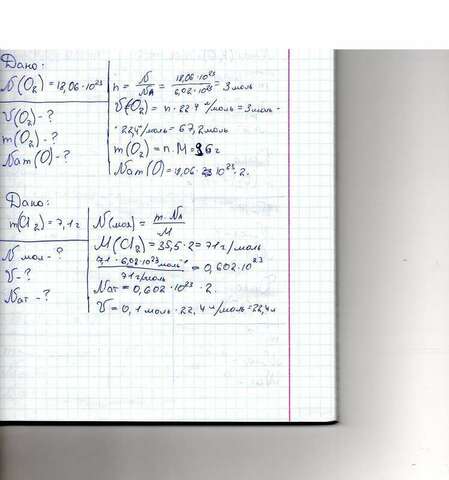 Дано:
N(O₂) = 18,06·10²³
V(O₂) - ?
m(O₂) - ?
Nат(O) - ?
n = N/Nₐ = 18,06·10²³/6,02·10²³ = 3 моль
V(O₂) = n·22.4 л/моль = 3 моль·
·22,4 л/моль = 67,2 моль
m(O₂) = n.M = 96 г
Nат(O) = 18,06·10²³·2.
Дано:
m(Cl₂) = 7,1 г
N мол - ?
V - ?
Nат - ?
N(мол) = m·Nₐ/M
M(Cl₂) = 35,5·2 = 71 г/моль
7,1·6,02·10²³ моль⁻¹/71 г/моль = 0,602·10²³
Nат = 0,602·10²³·2.
V = 0,1 моль·22,4 л/моль = 22,4 л